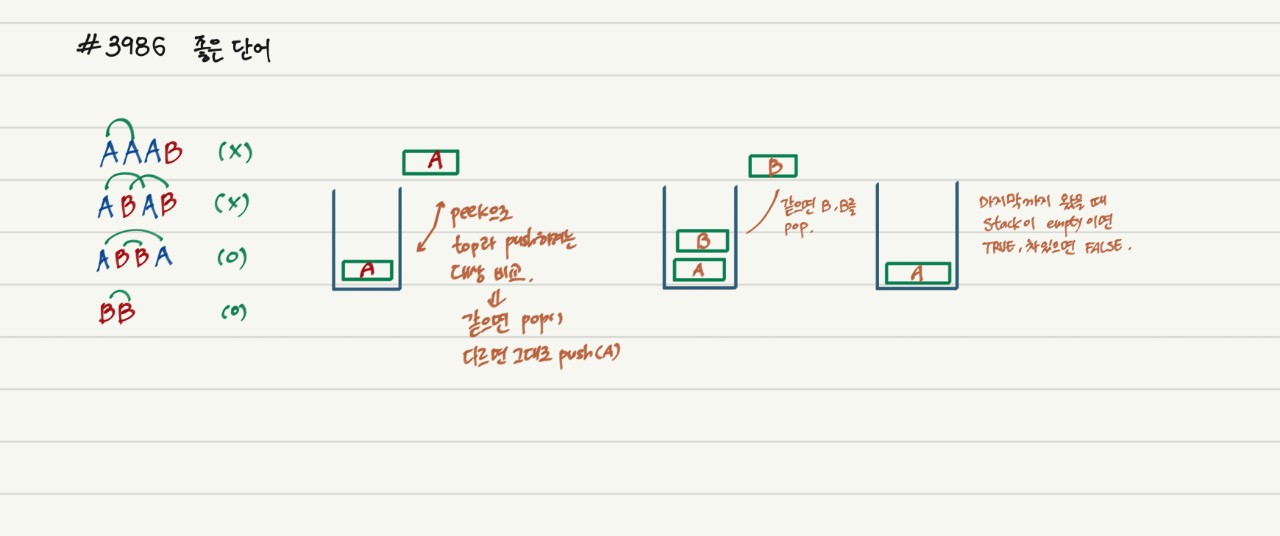 #3986 좋은 단어
AAAB (X)
ABAB (X)
ABBA (O)
BB (O)
A
A
peek으로
top과 push하려는
대상 비교.
⇓
같으면 pop,
다르면 그대로 push(A)
B
B
A
같으면 B, B를
pop.
A
마지막까지 왔을 때
Stack이 empty이면
TRUE, 차있으면 FALSE.